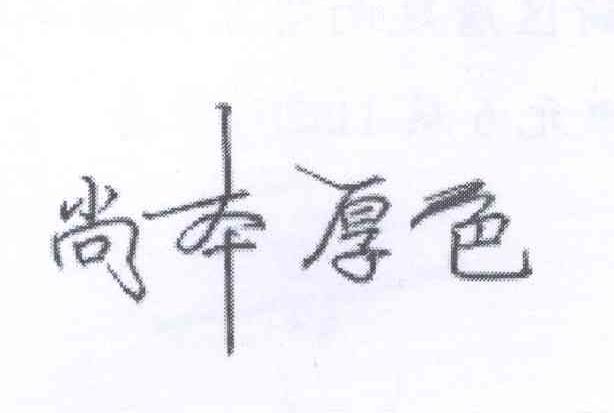 尚本厚色